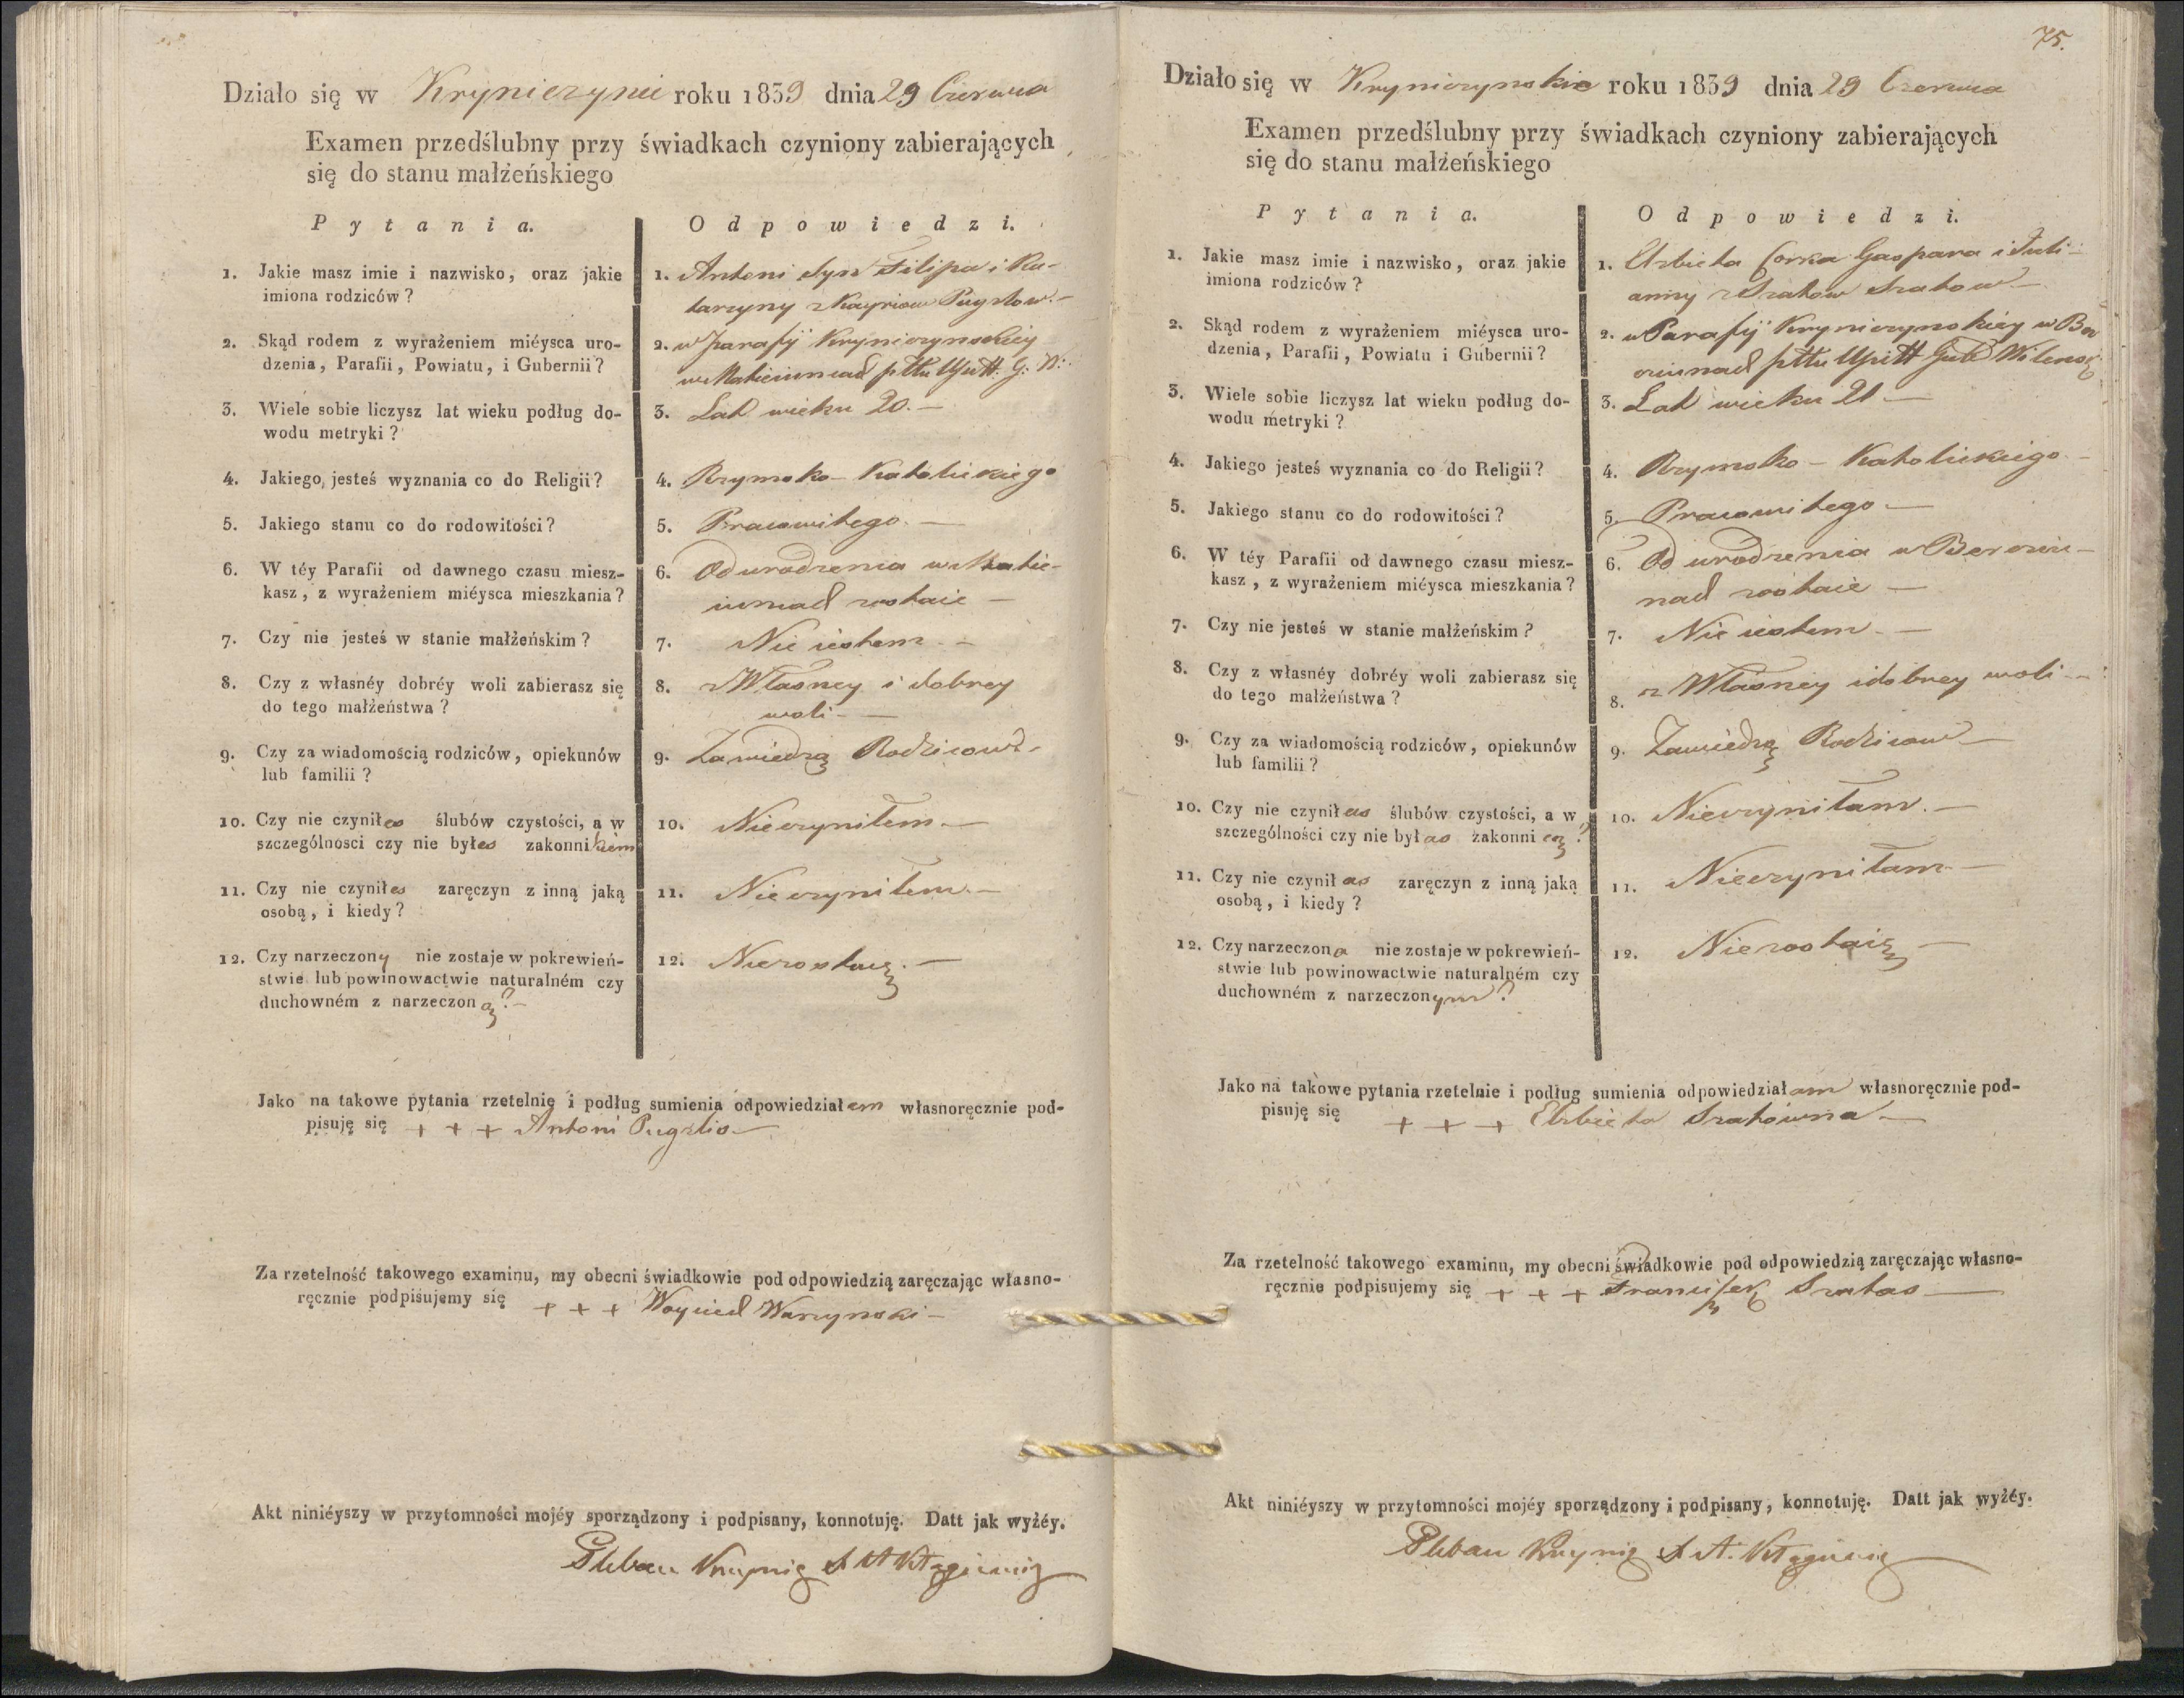 Działo się w Kryniczynie roku 1839 dnia 29 Czerwca
Examen przedślubny przy świadkach czyniony zabierających
się do stanu małżeńskiego
Pytania.
Odpowiedzi.
1. Jakie masz imie i nazwisko, oraz jakie
imiona rodziców?
1. Antoni Syn Filipa i Ka-
tarzyny z
2. Skąd rodem z wyrażeniem miéysca uro-
dzenia, Parafii, Powiatu, i Gubernii?
2. w Parafij Kryniczynskiey
3. Wiele sobie liczysz lat wieku podług do-
wodu metryki?
3. Lat wieku 20.—
4. Jakiego jesteś wyznania co do Religii?
4. Rzymsko-Katolickiego
5. Jakiego stanu co do rodowitości?
5. Pracowitego.—
6. W téy Parafii od dawnego czasu miesz-
kasz, z wyrażeniem miéysca mieszkania?
6. Od urodzenia w
zostaie —
7. Czy nie jesteś w stanie małżeńskim?
7. Nie iestem.—
8. Czy z własnéy dobréy woli zabierasz się
do tego małżeństwa?
8. z Własney i dobrey
woli.—
9. Czy za wiadomością rodziców, opiekunów
lub familii?
9. Zawiedzą Rodzicow.—
10. Czy nie czyniłes ślubów czystości, a w
szczególnosci czy nie byłes zakonnikiem
10. Nieczyniłem.—
11. Czy nie czyniłes zaręczyn z inną jaką
osobą, i kiedy?
11. Nieczyniłem.—
12. Czy narzeczony nie zostaje w pokrewień-
stwie lub powinowactwie naturalném czy
duchowném z narzeczoną?—
12. Niezostaię.—
Jako na takowe pytania rzetelnie i podług sumienia odpowiedziałem własnoręcznie pod-
pisuję się + + + Antoni Pugzlis—
Za rzetelność takowego examinu, my obecni świadkowie pod odpowiedzią zaręczając własno-
ręcznie podpisujemy się + + + Woyciech Warzynski—
Akt niniéyszy w przytomności mojéy sporządzony i podpisany, konnotuję. Datt jak wyżéy.
Pleban
75.
Działo się w Krynicznyskie roku 1839 dnia 29 Czerwca
Examen przedślubny przy świadkach czyniony zabierających
się do stanu małżeńskiego
Pytania.
Odpowiedzi.
1. Jakie masz imie i nazwisko, oraz jakie
imiona rodziców?
1. Elzbieta Corka Gaspara i Juli-
anny z Szatow Szatow—
2. Skąd rodem z wyrażeniem miéysca uro-
dzenia, Parafii, Powiatu i Gubernii?
2. w Parafij Kryniczynskiey w Ber
3. Wiele sobie liczysz lat wieku podług do-
wodu metryki?
3. Lat wieku 21.—
4. Jakiego jesteś wyznania co do Religii?
4. Rzymsko-Katolickiego—
5. Jakiego stanu co do rodowitości?
5. Pracowitego—
6. W téy Parafii od dawnego czasu miesz-
kasz, z wyrażeniem miéysca mieszkania?
6. Od urodzenia w
zostaie —
7. Czy nie jesteś w stanie małżeńskim?
7. Nie iestem.—
8. Czy z własnéy dobréy woli zabierasz się
do tego małżeństwa?
8. z Własney i dobrey woli—
9. Czy za wiadomością rodziców, opiekunów
lub familii?
9. Zawiedzą Rodzicow—
10. Czy nie czyniłas ślubów czystości, a w
szczególności czy nie byłas zakonnicą?
10. Nieczyniłam.—
11. Czy nie czyniłas zaręczyn z inną jaką
osobą, i kiedy?
11. Nieczyniłam—
12. Czy narzeczona nie zostaje w pokrewień-
stwie lub powinowactwie naturalném czy
duchowném z narzeczonym?
12. Niezostaię—
Jako na takowe pytania rzetelnie i podług sumienia odpowiedziałam własnoręcznie pod-
pisuję się + + + Elzbieta Szatowna—
Za rzetelność takowego examinu, my obecni świadkowie pod odpowiedzią zaręczając własno-
ręcznie podpisujemy się + + + Franciszek Szatas—
Akt niniéyszy w przytomności mojéy sporządzony i podpisany, konnotuję. Datt jak wyżéy.
Pleban